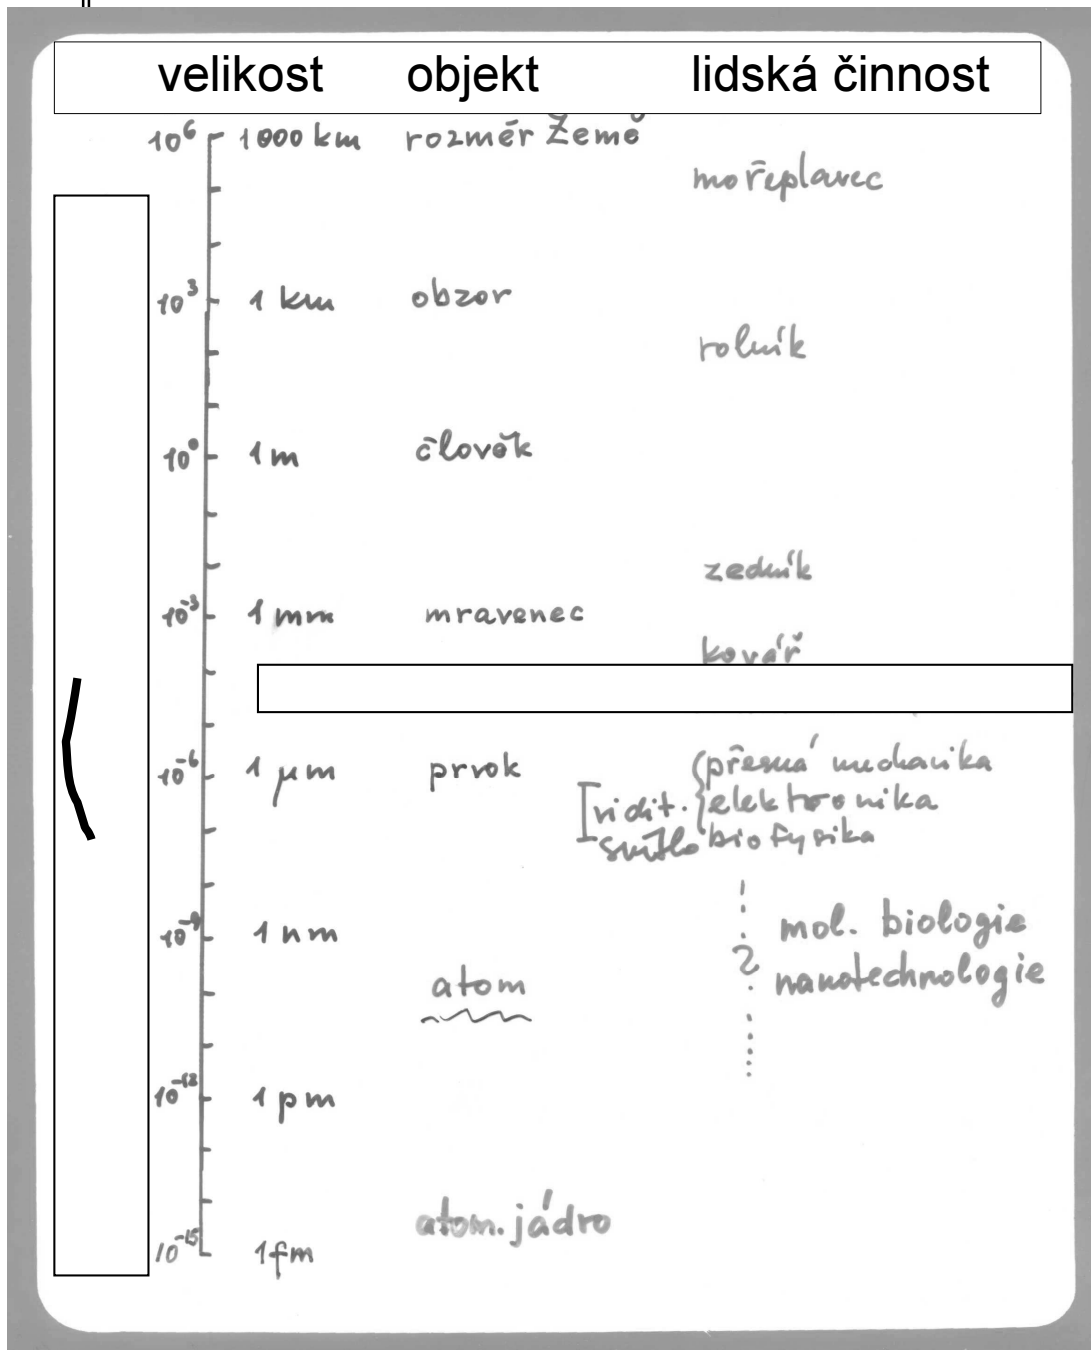 velikost objekt lidská činnost
10⁶ 1000 km rozměr Země
mořeplavec
10³ 1 km obzor
rolník
10⁰ 1 m člověk
zedník
10⁻³ 1 mm mravenec
kovář
10⁻⁶ 1 μm prvok přesná mechanika
vidit. elektronika
světlo biofysika
10⁻⁹ 1 nm mol. biologie
?
atom nanotechnologie
10⁻¹² 1 pm
atom. jádro
10⁻¹⁵ 1 fm